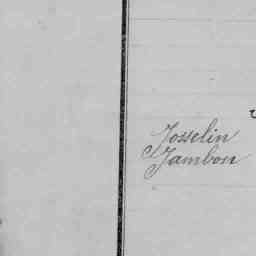 Josselin
Jambon